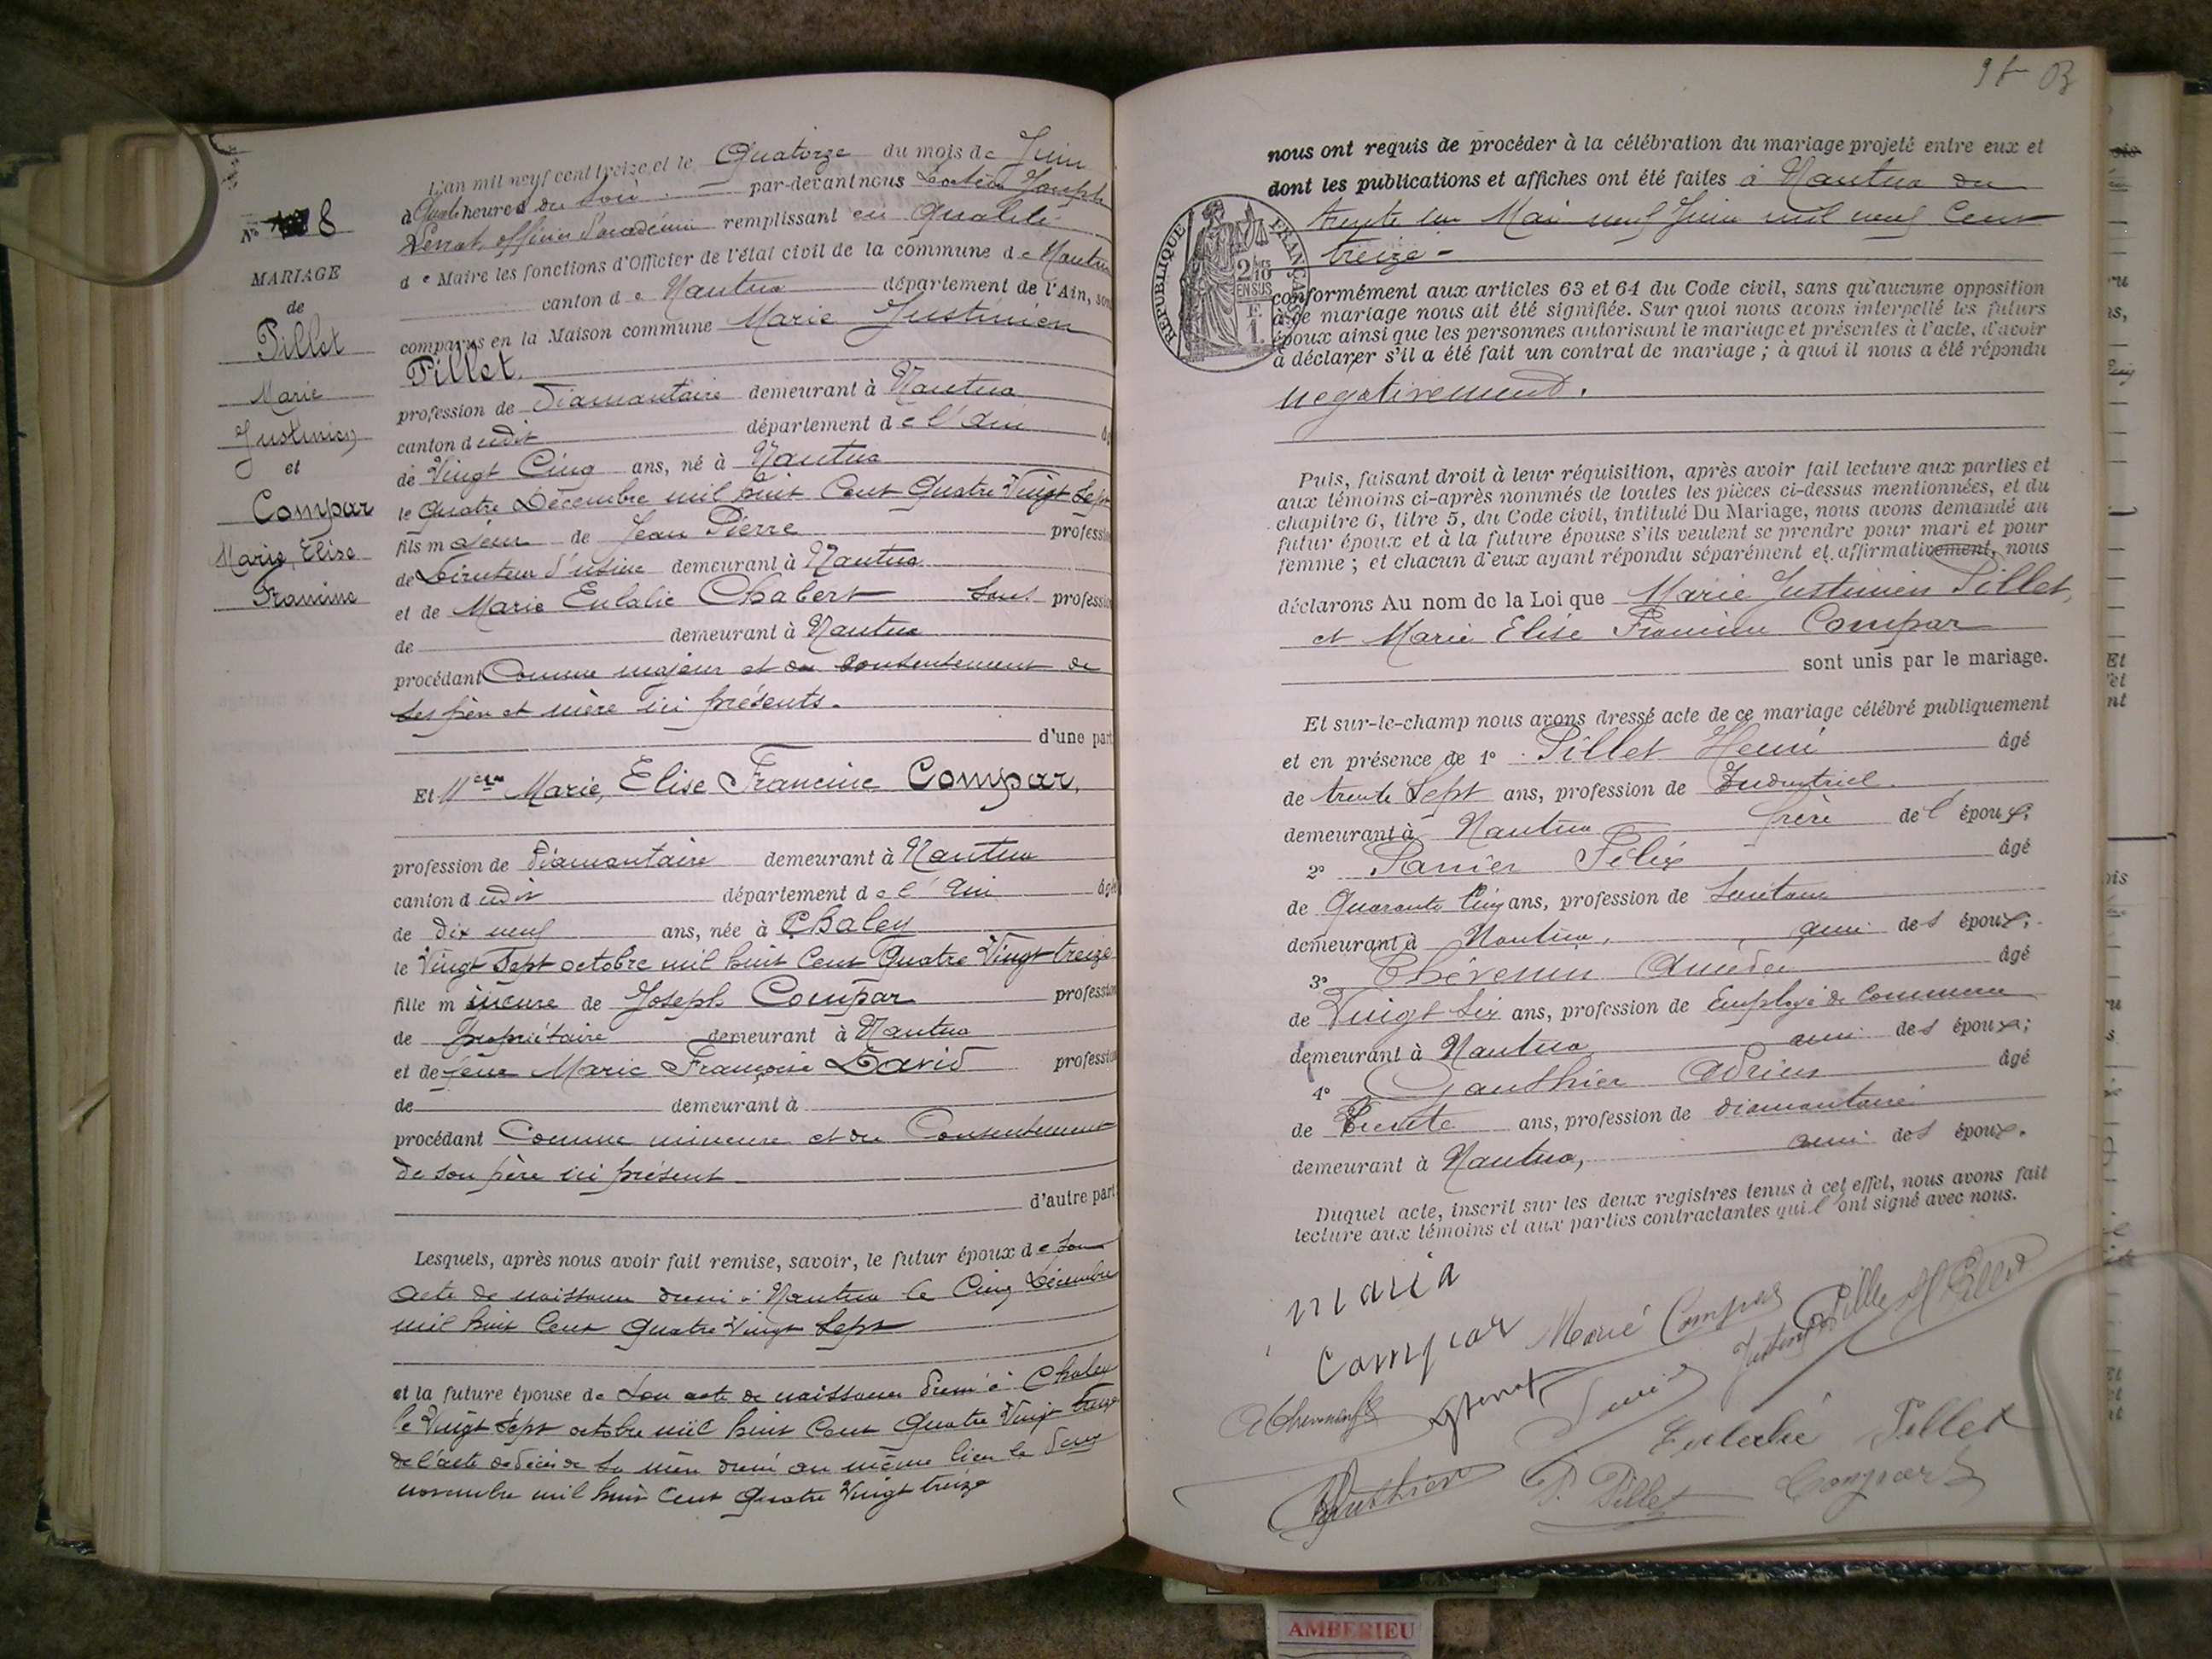 N° 8
MARIAGE
de
Pillet
Marie
Justinien
et
Compar
Marie, Elise
Francine
L'an mil neuf cent treize, et le Quatorze du mois de Juin
à Quatre heures du soir par-devant nous Docteur Joseph
officier d'académie remplissant en qualité
de Maire les fonctions d'Officier de l'état civil de la commune de Nantua
canton de Nantua département de l'Ain, sont
comparus en la Maison commune Marie Justinien
Pillet.
profession de Diamantaire demeurant à Nantua
canton dudit département de l'Ain
de Vingt Cinq ans, né à Nantua
le Quatre Décembre mil huit Cent Quatre Vingt Sept
fils majeur de Jean Pierre profession
de Directeur d'usine demeurant à Nantua
et de Marie Eulalie Chabert Sans profession
de demeurant à Nantua
procédant Comme majeur et du consentement de
ses père et mère ici présents.
d'une part
Et Melle Marie, Elise Francine Compar,
profession de Diamantaire demeurant à Nantua
canton dudit département de l'Ain âgée
de dix neuf ans, née à Chaley
le Vingt Sept octobre mil huit Cent Quatre Vingt treize
fille mineure de Joseph Compar profession
de propriétaire demeurant à Nantua
et de feue Marie Françoise David profession
de demeurant à
procédant Comme mineure et du Consentement
de son père ici présent
d'autre part
Lesquels, après nous avoir fait remise, savoir, le futur époux de son
acte de naissance dressé à Nantua le Cinq Décembre
mil huit Cent Quatre Vingt Sept
et la future épouse de son acte de naissance dressé à Chaley
le Vingt Sept octobre mil huit Cent Quatre Vingt treize
de l'acte de décès de sa mère dressé au même lieu le deux
novembre mil huit Cent Quatre Vingt treize
nous ont requis de procéder à la célébration du mariage projeté entre eux et
dont les publications et affiches ont été faites à Nantua du
trente un Mai neuf Juin mil neuf Cent
treize -
RÉPUBLIQUE FRANÇAISE
2/10
EN SUS
1 F.
conformément aux articles 63 et 64 du Code civil, sans qu'aucune opposition
à ce mariage nous ait été signifiée. Sur quoi nous avons interpellé les futurs
époux ainsi que les personnes autorisant le mariage et présentes à l'acte, d'avoir
à déclarer s'il a été fait un contrat de mariage ; à quoi il nous a été répondu
negativement.
Puis, faisant droit à leur réquisition, après avoir fait lecture aux parties et
aux témoins ci-après nommés de toutes les pièces ci-dessus mentionnées, et du
chapitre 6, titre 5, du Code civil, intitulé Du Mariage, nous avons demandé au
futur époux et à la future épouse s'ils veulent se prendre pour mari et pour
femme ; et chacun d'eux ayant répondu séparément et affirmativement, nous
déclarons Au nom de la Loi que Marie Justinien Pillet,
et Marie Elise Francine Compar
sont unis par le mariage.
Et sur-le-champ nous avons dressé acte de ce mariage célébré publiquement
et en présence de 1° Pillet Henri âgé
de trente Sept ans, profession de Industriel
demeurant à Nantua frère de l'époux;
2° Félix âgé
de Quarante Cinq ans, profession de
demeurant à Nantua, ami des époux;
3° Thévenin Amédée âgé
de Vingt Six ans, profession de Employé de Commerce
demeurant à Nantua ami des époux;
4° Gauthier Adrien âgé
de Trente ans, profession de diamantaire
demeurant à Nantua, ami des époux.
Duquel acte, inscrit sur les deux registres tenus à cet effet, nous avons fait
lecture aux témoins et aux parties contractantes qui l'ont signé avec nous.
maria
Compar
Marie Compar
Justin Pillet
H Pillet
Eulalie Pillet
Gauthier
P. Pillet
Compar
AMBERIEU